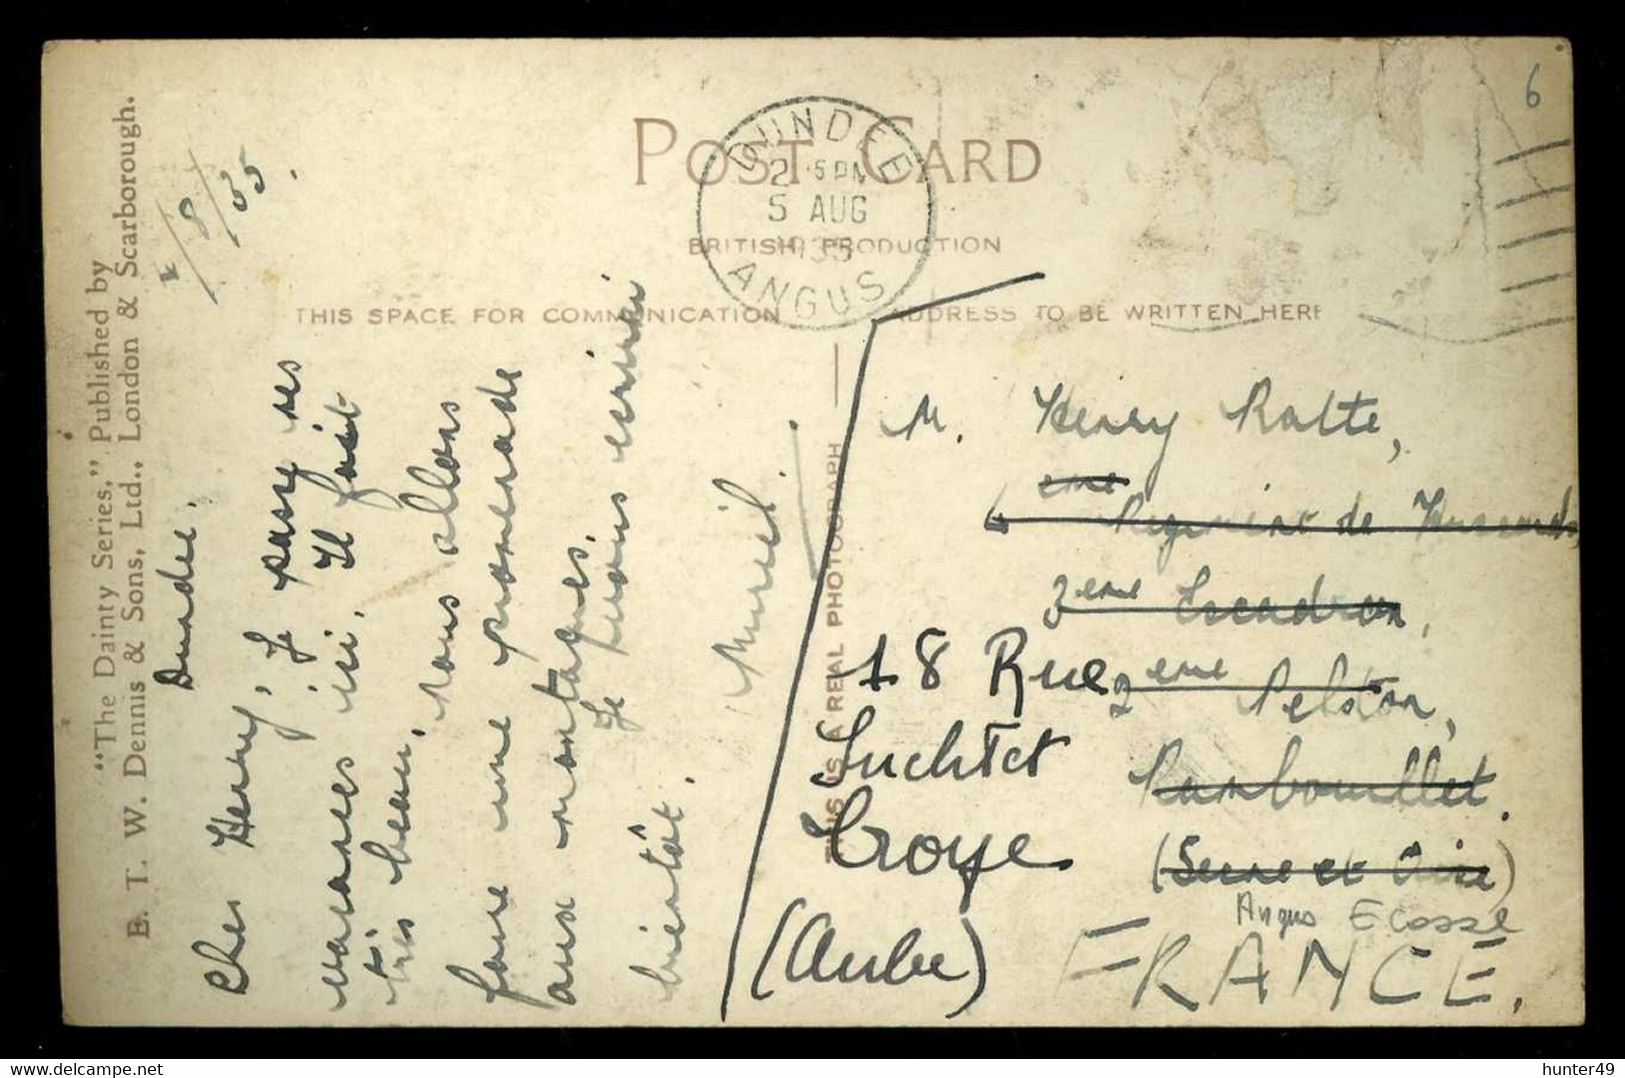 POST CARD
BRITISH PRODUCTION
THIS SPACE FOR COMMUNICATION
ADDRESS TO BE WRITTEN HERE
DUNDEE
5 PM
5 AUG
1935
ANGUS
6
"The Dainty Series," Published by
E. T. W. Dennis & Sons, Ltd., London & Scarborough.
THIS IS A REAL PHOTOGRAPH
Dundee.
Cher Henry, Je passe mes
vacances ici. Il fait
très beau. Nous allons
faire une promenade
aux montagnes.
Je écrirai
bientôt.
Muriel.
M. Henry Ratte,
eme
Regiment de Hussards
3eme Escadron,
2eme Peloton,
Rambouillet.
(Seine et Oise)
Angus Ecosse
FRANCE.
18 Rue
Luchtet
Troye
(Aube)
delcampe.net
hunter49